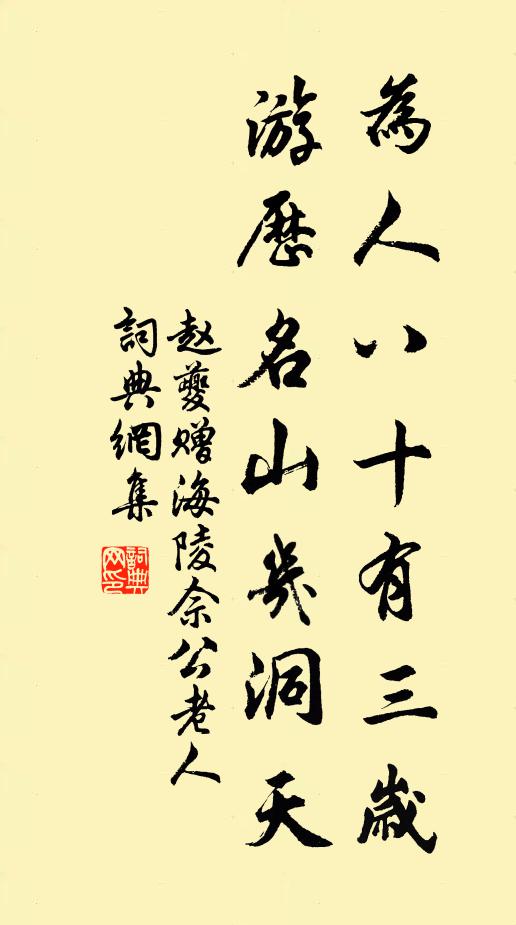 為人八十有三歲
游歷名山幾洞天
赵夔赠海陵佘公老人
詞典網集
詞典网印